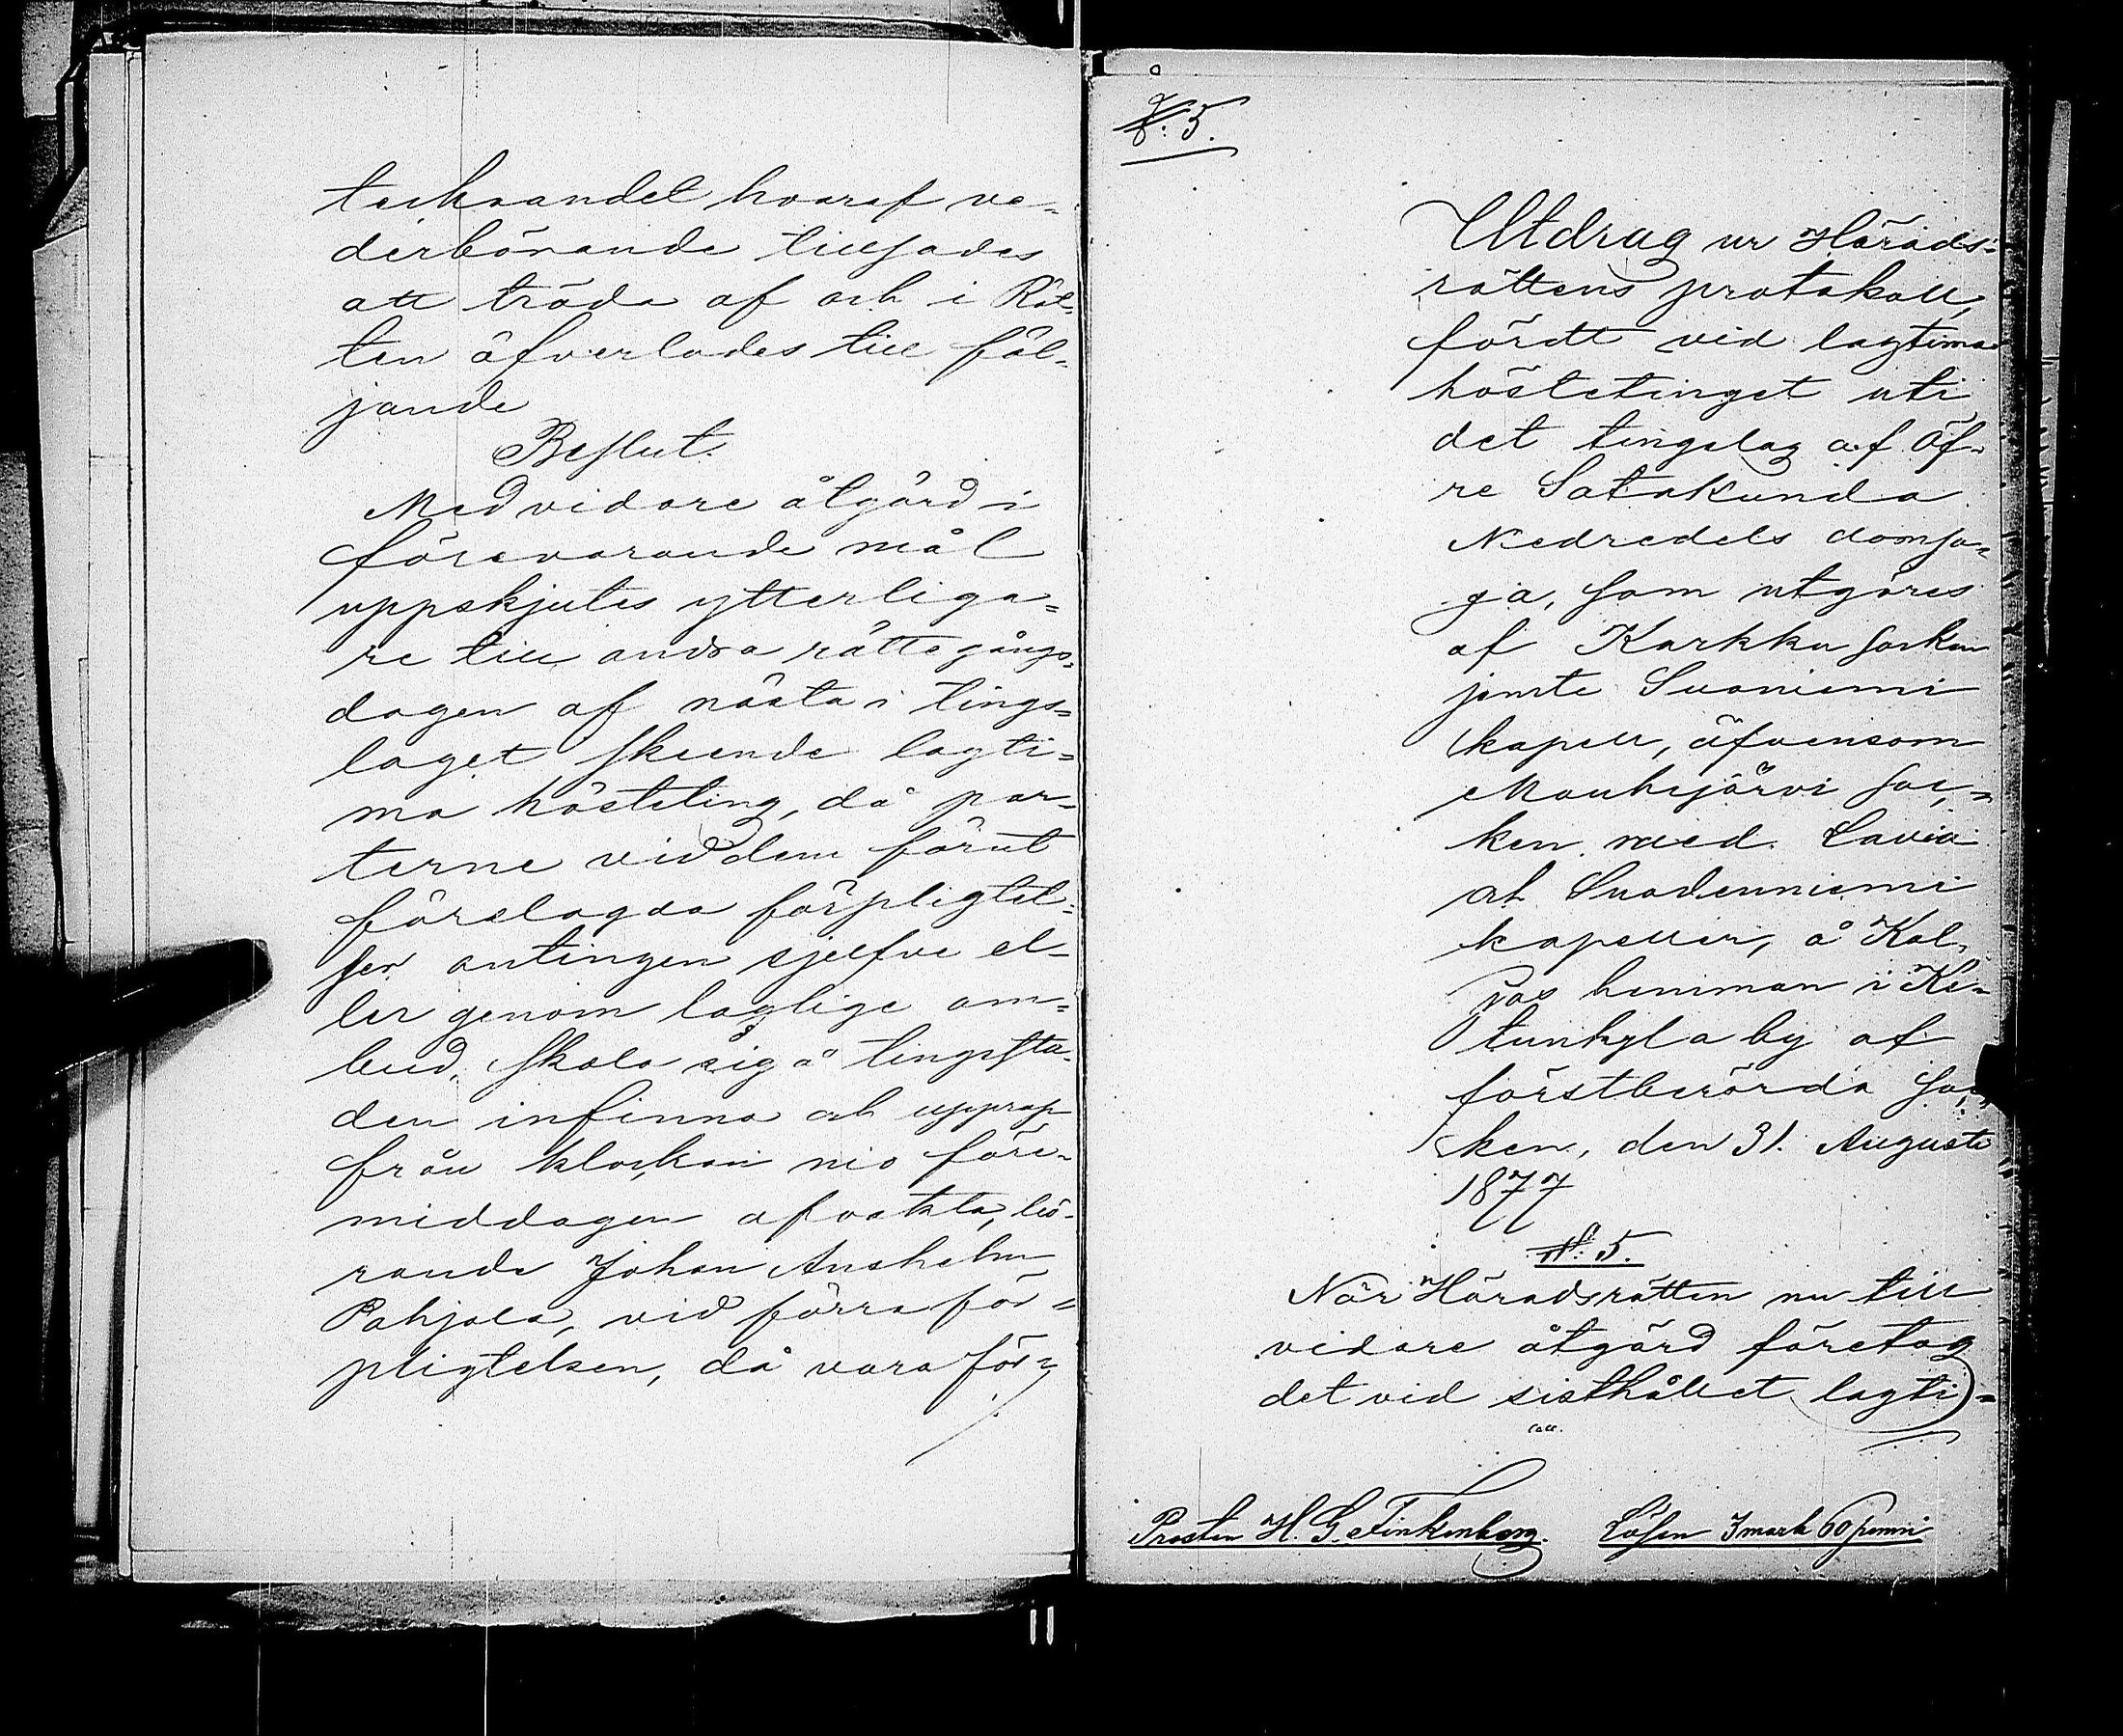 tecknandet hvaraf ve-
derbörande tillsades
att träda af och i Rät-
ten öfverlades till föl-
jande
Beslut.
Med vidare åtgärd i
förevarande mål
uppskjutes ytterliga-
re till andra rättegångs-
dagen af nästa i tings-
laget skeende lagti-
ma höstting, då par-
terne vid dem förut
förelagda förpligtel-
ser antingen sjelfve el-
ler genom laglige om-
bud, skola sig å tingssta-
den infinna och upprop
från klockan nio före-
middagen afvakta, bö-
rande Johan Anshelm
Pahjola, vid förra för-
pligtelsen, då vara för-
№: 5.
Utdrag ur Härads-
rättens protokoll,
fördt vid lagtima
höstetinget uti
det tingslag af Öf-
re Satakunda
Nedredels domsa-
ga, som utgöres
af Karkku socken
jemte Suoniemi
kapell, äfvensom
Mouhijärvi soc-
ken med Lavia
och Suodenniemi
kapeller, å Kal-
pas hemman i Ku-
tunkyla by af
förstberörda soc-
ken, den 31. Augusti
1877
№: 5.
När Häradsrätten nu till
vidare åtgärd företog
det vid sisthållet lagti-
Prosten H. G. Finkenberg. Lösen 3 mark 60 penni